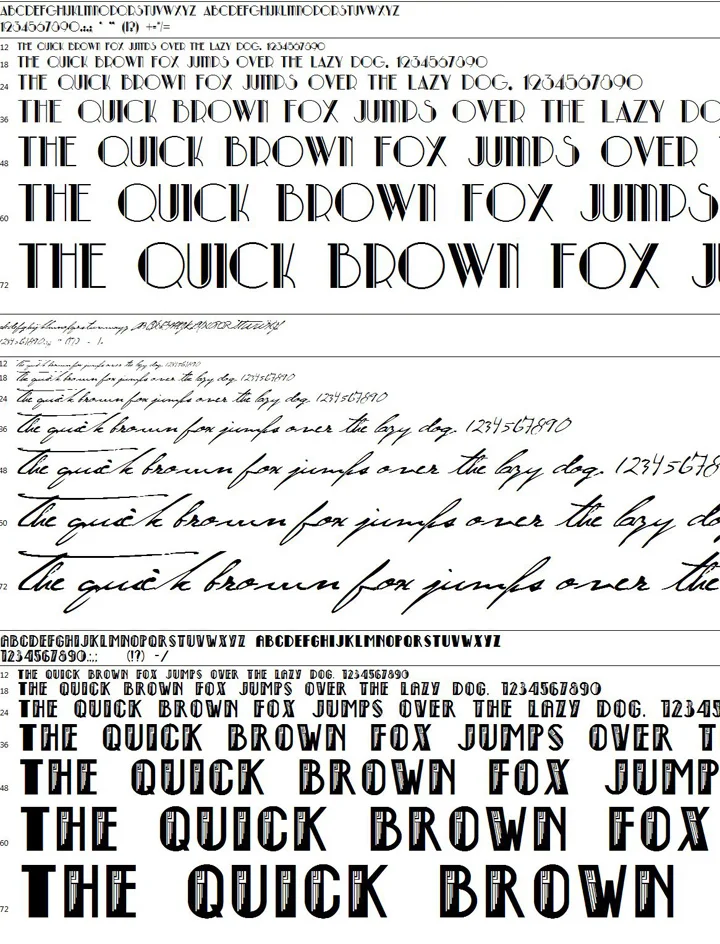 ABCDEFGHIJKLMNOPQRSTUVWXYZ ABCDEFGHIJKLMNOPQRSTUVWXYZ
1234567890.:,; ' " (!?) +-*/=
12 THE QUICK BROWN FOX JUMPS OVER THE LAZY DOG. 1234567890
18 THE QUICK BROWN FOX JUMPS OVER THE LAZY DOG. 1234567890
24 THE QUICK BROWN FOX JUMPS OVER THE LAZY DOG. 1234567890
36 THE QUICK BROWN FOX JUMPS OVER THE LAZY DO
48 THE QUICK BROWN FOX JUMPS OVER
60 THE QUICK BROWN FOX JUMPS
72 THE QUICK BROWN FOX JU
abcdefghijklmnopqrstuvwxyz ABCDEFGHIJKLMNOPQRSTUVWXYZ
1234567890.:,; " (!?) - /.
12 the quick brown fox jumps over the lazy dog. 1234567890
18 the quick brown fox jumps over the lazy dog. 1234567890
24 the quick brown fox jumps over the lazy dog. 1234567890
36 the quick brown fox jumps over the lazy dog. 1234567890
48 the quick brown fox jumps over the lazy dog. 12345678
60 the quick brown fox jumps over the lazy do
72 the quick brown fox jumps over the
ABCDEFGHIJKLMNOPQRSTUVWXYZ ABCDEFGHIJKLMNOPQRSTUVWXYZ
1234567890.:,; (!?) -/
12 THE QUICK BROWN FOX JUMPS OVER THE LAZY DOG. 1234567890
18 THE QUICK BROWN FOX JUMPS OVER THE LAZY DOG. 1234567890
24 THE QUICK BROWN FOX JUMPS OVER THE LAZY DOG. 12345
36 THE QUICK BROWN FOX JUMPS OVER T
48 THE QUICK BROWN FOX JUMP
60 THE QUICK BROWN FOX
72 THE QUICK BROWN